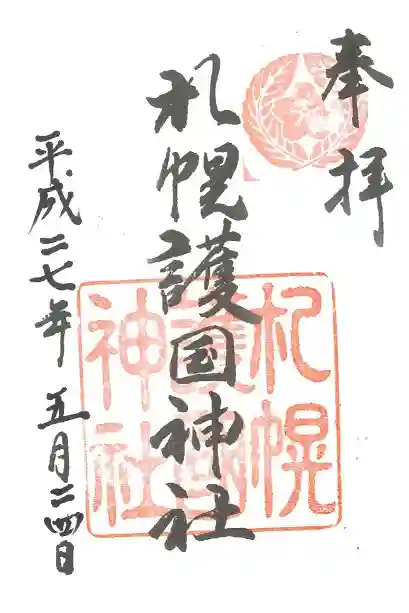 奉拝
札幌護国神社
平成二七年 五月二四日
札幌
護国
神社